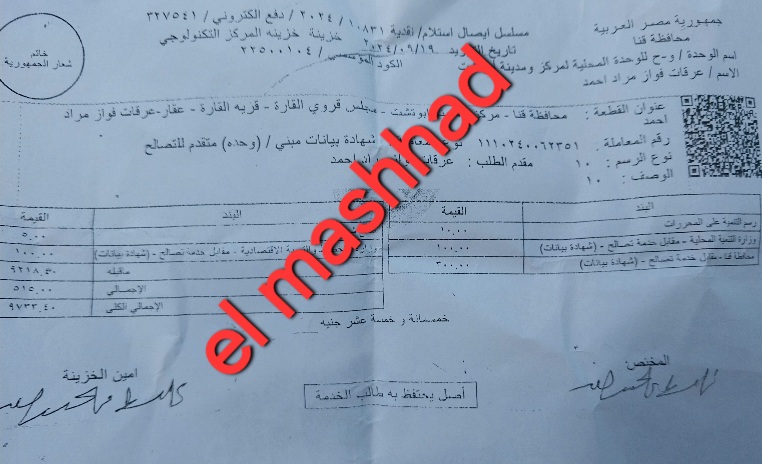 جمهورية مصر العربية
محافظة قنا
مسلسل ايصال استلام/ نقدية ١٠٨٣١ / ٢٠٢٤ / دفع الكتروني / ٣٢٧٥٤١
خزينة خزينه المركز التكنولوجي
تاريخ ٢٠٢٤/٠٩/١٩
اسم الوحدة / و-ح للوحدة المحلية لمركز ومدينة
الكود ٢٢٥٠٠١٠٤ /
الاسم / عرفات فواز مراد احمد
خاتم
شعار الجمهورية
عنوان القطعة : محافظة قنا - مركز ابوتشت - مجلس قروي القارة - قريه القارة - عقار-عرفات فواز مراد
احمد
رقم المعاملة : ١١١٠٢٤٠٠٦٢٣٥١ شهادة بيانات مبني / (وحده) متقدم للتصالح
نوع الرسم : ١٠ مقدم الطلب : احمد
الوصف : ١٠
البند القيمة البند القيمة
رسم التنمية على المحررات ١٠.٠٠ ٥.٠٠
وزارة التنمية المحلية - مقابل خدمة تصالح - (شهادة بيانات) ١٠٠.٠٠ الاقتصادية - مقابل خدمة تصالح - (شهادة بيانات) ١٠٠.٠٠
محافظة قنا - مقابل خدمة تصالح - (شهادة بيانات) ٣٠٠.٠٠ ماقبله ٩٢١٨.٤٠
الإجمالي ٥١٥.٠٠
الإجمالي الكلي ٩٧٣٣.٤٠
خمسمائة و خمسة عشر جنيه
المختص:
امين الخزينة
أصل يحتفظ به طالب الخدمة
el mashhad